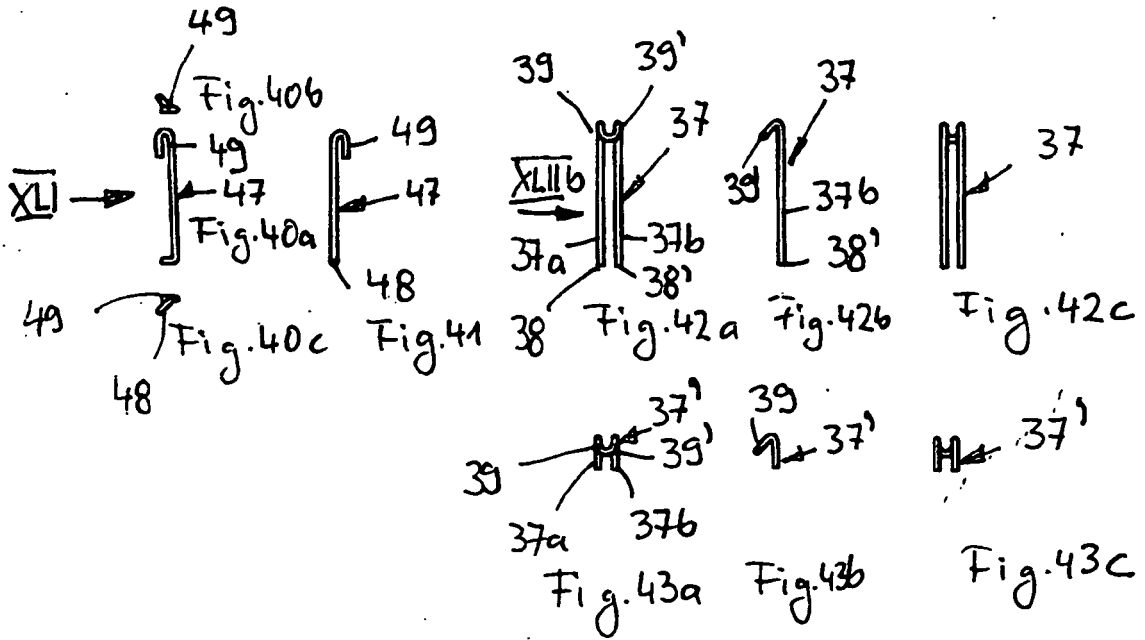 49
Fig.40b
49
XLI
47
Fig.40a
49
48
Fig.40c
49
47
48
Fig.41
39
39'
37
XLIIb
37a
37b
38
38'
Fig.42a
37
39'
37b
38'
Fig.42b
37
Fig.42c
37'
39
39'
37a
37b
Fig.43a
39
37'
Fig.43b
37'
Fig.43c